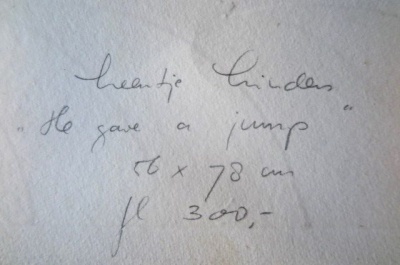 „He gave a jump"
56 x 78 cm
fl 300,-